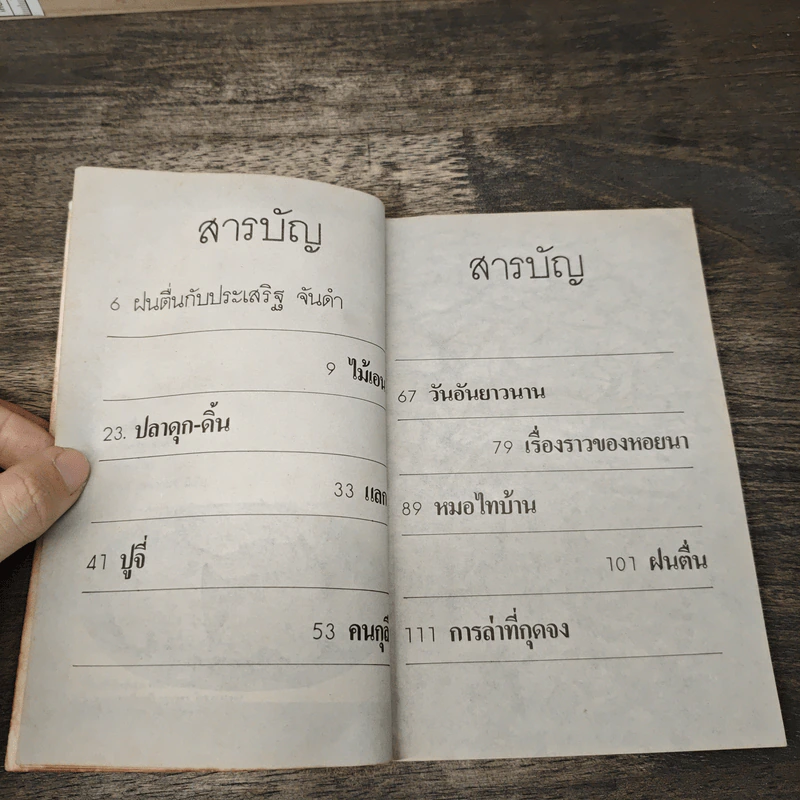 สารบัญ
6 ฝนตื่นกับประเสริฐ จันดำ
9 ไม้เอน
23. ปลาดุก-ดิ้น
33 แลก
41 ปูจี่
53
สารบัญ
67 วันอันยาวนาน
79 เรื่องราวของหอยนา
89 หมอไทบ้าน
101 ฝนตื่น
111 การล่าที่กุดจง